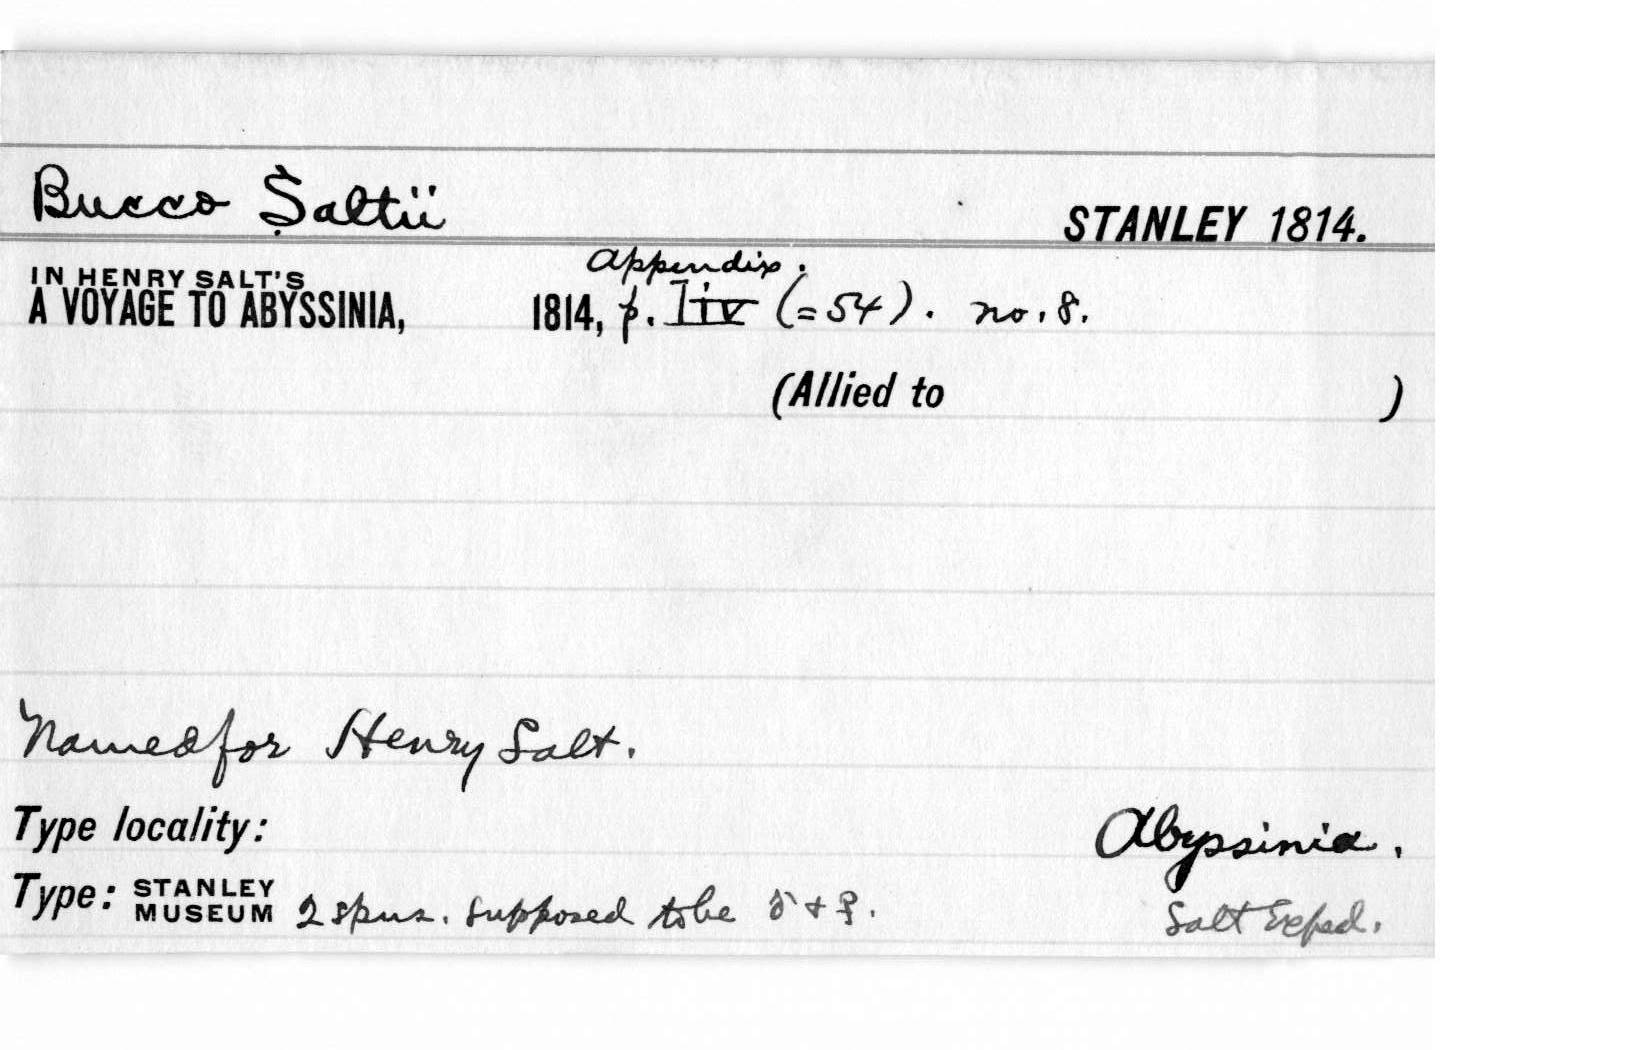 Bucco Saltii STANLEY 1814.
IN HENRY SALT'S
Appendix.
A VOYAGE TO ABYSSINIA, 1814, p. liv (=54). no. 8.
(Allied to )
Named for Henry Salt.
Type locality: Abyssinia.
Type: STANLEY MUSEUM 2 spms. supposed to be ♂ + ♀. Salt Exped.